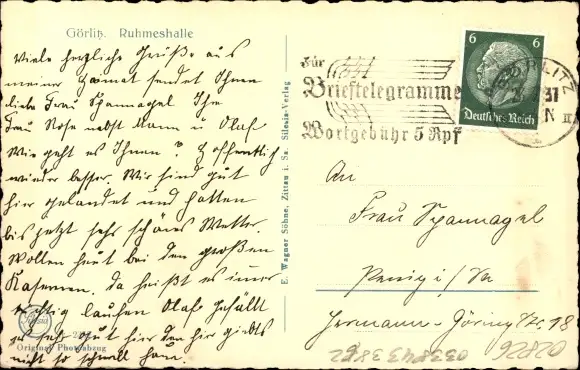 Görlitz. Ruhmeshalle
Viele herzliche Grüße aus
meiner Heimat sendet Ihnen
liebe Frau Spannagel Ihre
Frau Rose nebst Mann u Olaf
Wie geht es Ihnen? Hoffentlich
wieder besser. Wir sind gut
hier gelandet und hatten
bis jetzt sehr schönes Wetter.
Wollen heut bei den großen
Kasernen. Da heißt es immer
tüchtig laufen Olaf gefällt
es sehr gut hier denn hier giebts
nicht so schnell
Original Photoabzug
E. Wagner Söhne, Zittau i. Sa. Silesia-Verlag
Für
Brieftelegramme
Wortgebühr 5 Rpf
GÖRLITZ
6 6
Deutsches Reich
An
Frau Spannagel
Penig i/ Sa
Hermann-Göring Str. 18
02826